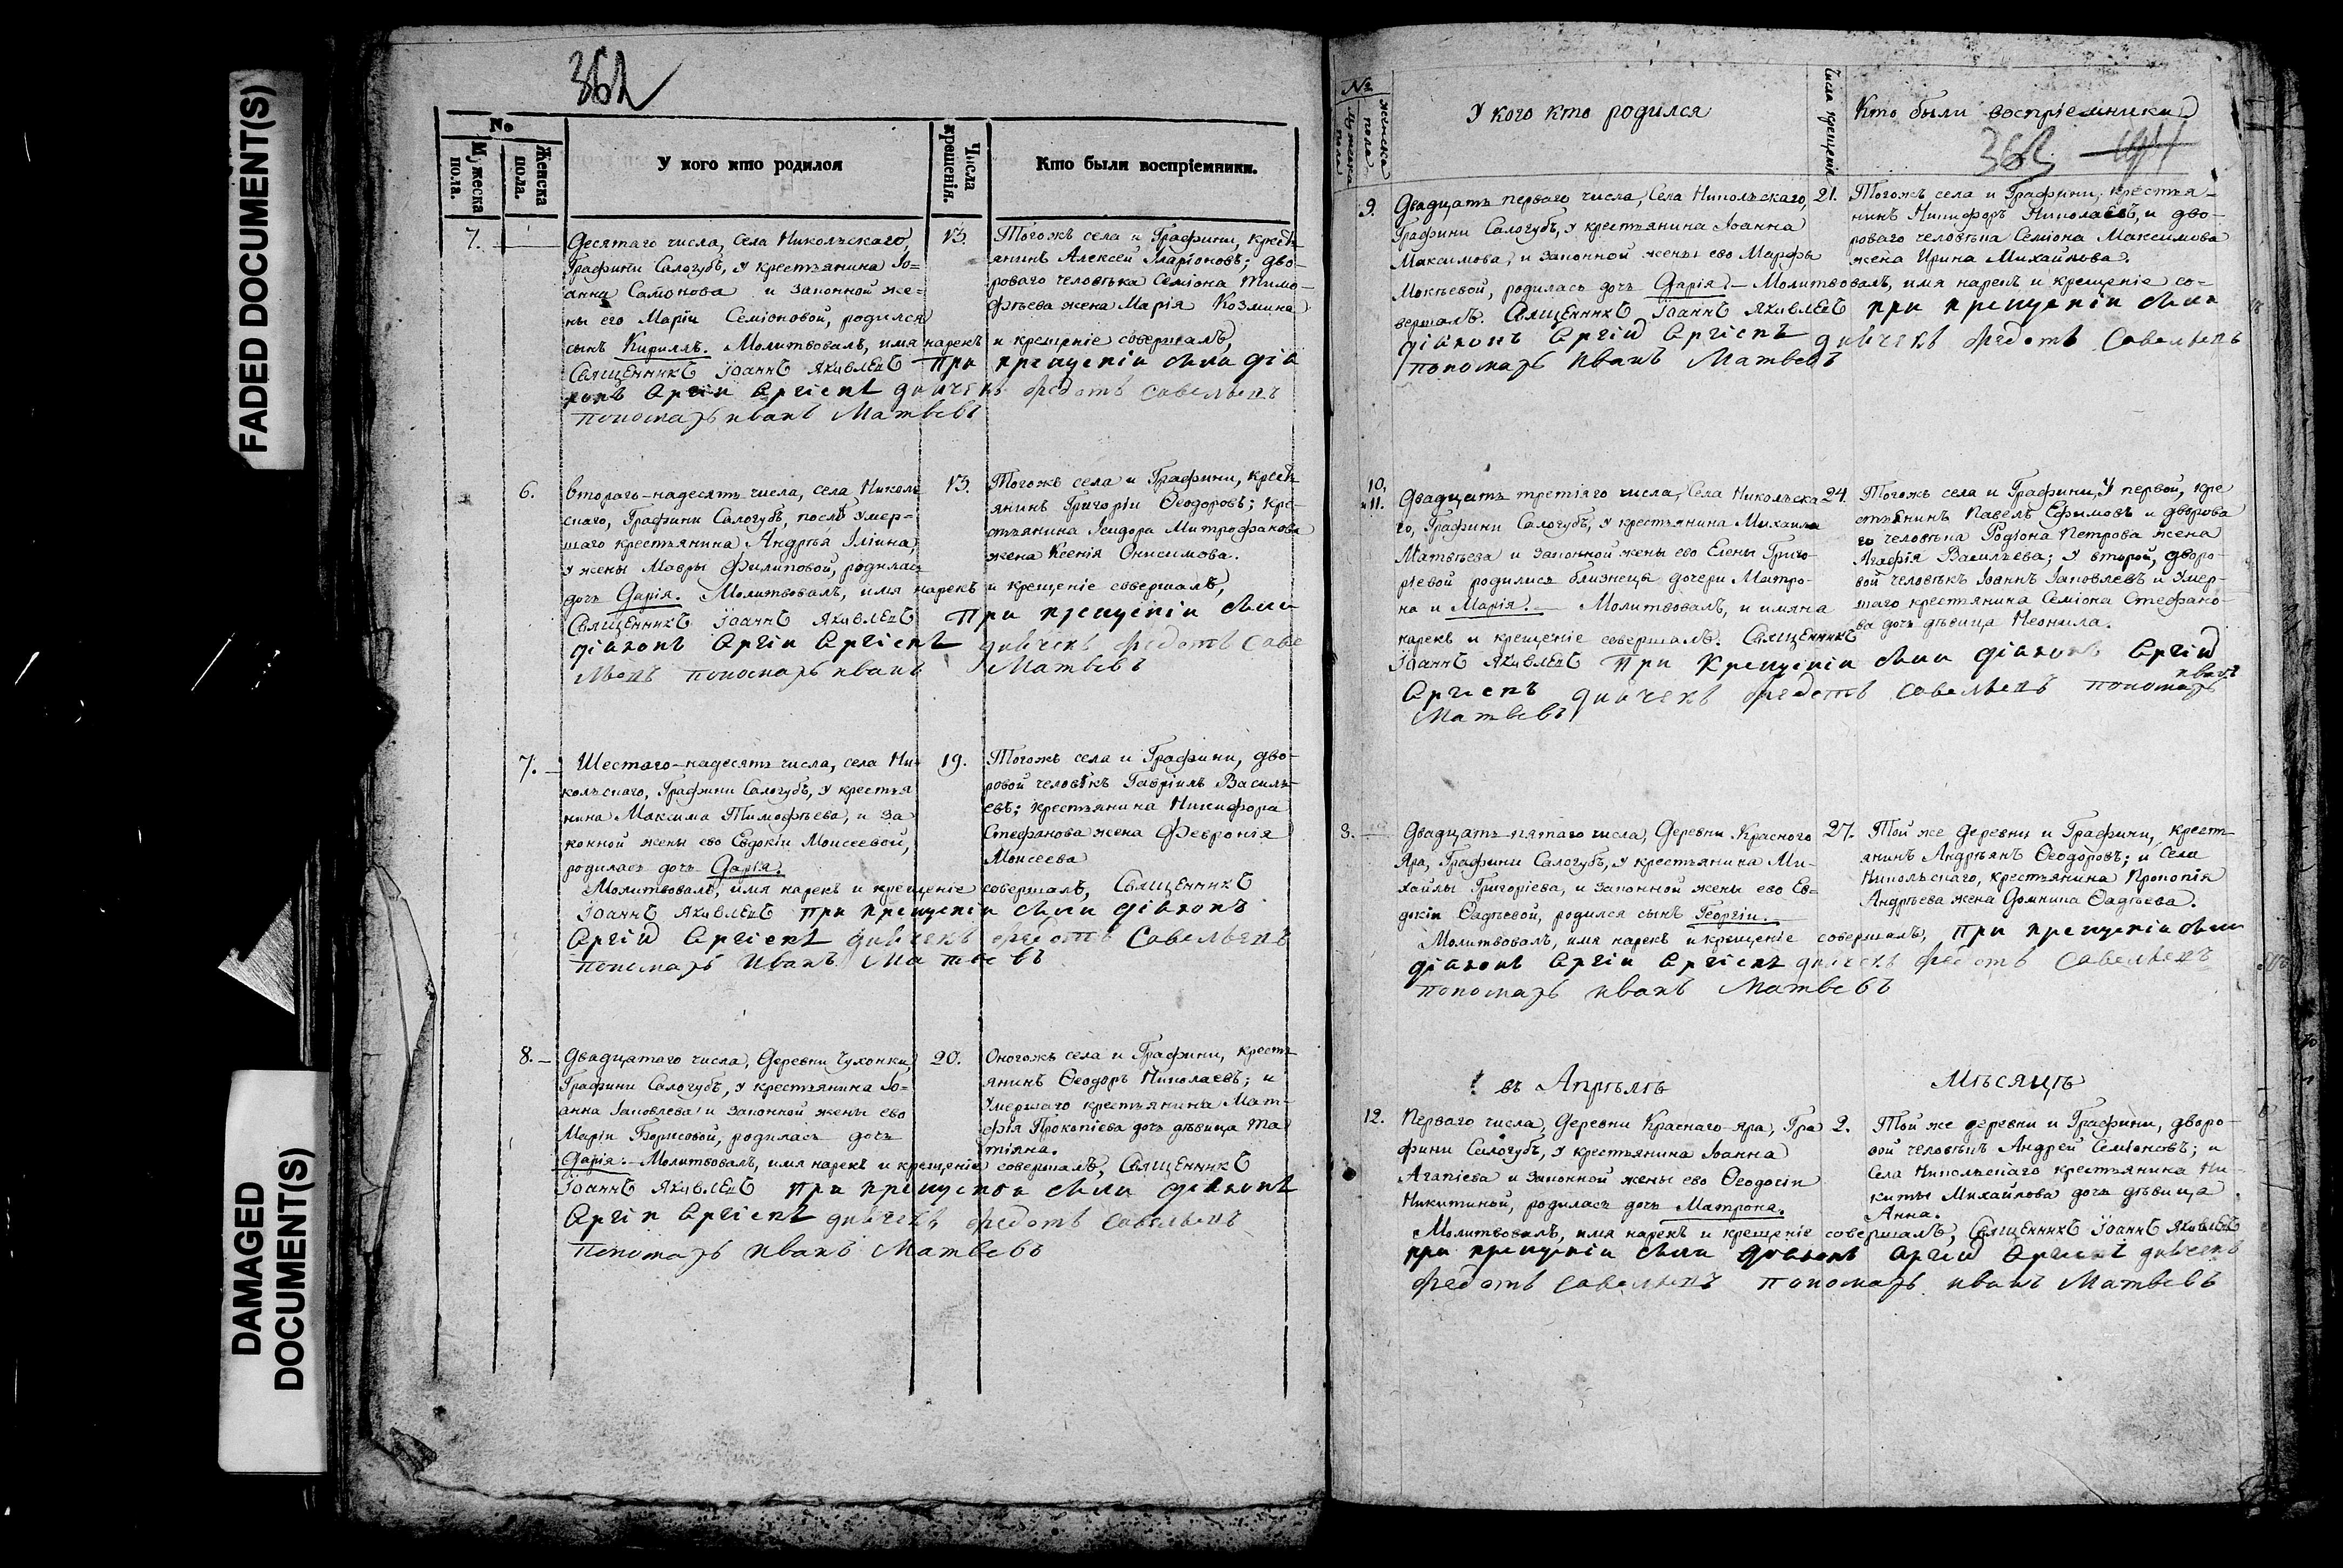 FADED DOCUMENT(S)
DAMAGED
DOCUMENT(S)
362
No
Мужеска пола.
Женска пола.
У кого кто родился
Числа крещенія.
Кто были воспріемники.
7.
Десятаго числа, села Никольскаго,
Графини Салогубъ, у крестьянина Іо=
анна Самонова и законной же=
ны его Маріи Семіоновой, родился
сынъ Кириллъ. Молитвовалъ, имя нарекъ и крещеніе совершалъ,
Священникъ Іоаннъ Яковлевъ при крещеніи были діа
конъ Сргіи Сргіевъ дьячекъ Федотъ Савельевъ
пономарь иванъ Матвевъ
13.
Тогожъ села и Графини, крест
янинъ Алексей Иларіоновъ; дво-
роваго человѣка Семіона Тимо-
фѣева жена Марія Козмина
6.
втораго-надесять числа, села Николь
скаго, Графини Салогубъ, послѣ умер=
шаго крестьянина Андрѣя Іліина,
у жены Мавры Филиповой, родилась
дочь Дарія. Молитвовалъ, имя нарекъ и крещеніе совершалъ,
Священникъ Іоаннъ Яковлевъ При крещеніи были
діаконъ Сргіи Сргіевъ дьячекъ Федотъ Саве
льевъ пономарь иванъ Матвевъ
13.
Тогожъ села и Графини, крест
янинъ Григоріи Ѳеодоровъ; кре-
стьянина Ісидора Митрофанова
жена Ксенія Онисимова.
7.
Шестаго-надесять числа, села Ни-
кольскаго, Графини Салогубъ, у крестья
нина Максима Тимофѣева, и за
конной жены ево Евдокіи Моисеевой,
родилась дочь Дарія.
Молитвовалъ, имя нарекъ и крещеніе совершалъ, Священникъ
Іоаннъ Яковлевъ при крещеніи были діаконъ
Сргій Сргіевъ дьячекъ Федотъ Савельевъ
пономарь Иванъ Матвевъ
19.
Тогожъ села и Графини, дво-
ровой человѣкъ Гавріилъ Василь-
евъ; крестьянина Никифора
Стефанова жена Февронія
Моисеева
8.
Двадцатаго числа, Деревни Чухонки,
Графини Салогубъ, у крестьянина Іо=
анна Іаковлева и законной жены ево
Маріи Борисовой, родилась дочь
Дарія. Молитвовалъ, имя нарекъ и крещеніе совершалъ, Священникъ
Іоаннъ Яковлевъ при крещеніи были діаконъ
Сргіи Сргіевъ дьячекъ Федотъ Савельевъ
Пономарь Иванъ Матвевъ
20.
Оногожъ села и Графини, кресть
янинъ Ѳеодоръ Николаевъ; и
умершаго крестьянина Мат-
фія Прокопіева дочь дѣвица Та
тіяна.
№
женска пола
Мужеска пола
У кого кто родился
Числа крещеніи
Кто были воспріемники
362
9.
Двадцать перваго числа, Села Никольскаго,
Графини Салогубъ, у крестьянина Іоанна
Максимова, и законной жены ево Марфы
Мокѣевой, родилась дочь Дарія. Молитвовалъ, имя нарекъ и крещеніе со-
вершалъ. Священникъ Іоаннъ Яковлевъ при крещеніи были
діаконъ Сргій Сргіевъ дьячекъ Федотъ Савельевъ
пономарь Иванъ Матвевъ
21.
Тогожъ села и Графини, крестья-
нинъ Никифоръ Николаевъ, и дво-
роваго человѣка Семіона Максимова
жена Ирина Михайлова.
10,
и 11.
Двадцать третіяго числа, Села Никольска
го, Графини Салогубъ, у крестьянина Михаила
Матвѣева и законной жены ево Елены Григо-
ріевой родились близнецы дочери Матро-
на и Марія. Молитвовалъ, и имяна
нарекъ и крещеніе совершалъ. Священникъ
Іоаннъ Яковлевъ При Крещеніи были діаконъ Сргій
Сргіевъ дьячекъ Федотъ Савельевъ пономарь иванъ
Матвевъ
24.
Тогожъ села и Графини, У первой, кре
стьянинъ Павелъ Ефимовъ и дворова
го человѣка Родіона Петрова жена
Агафія Васильева; у второй, дворо-
вой человѣкъ Іоаннъ Іаковлевъ и умер-
шаго крестьянина Семіона Стефано-
ва дочь дѣвица Неонила.
8.
Двадцать-пятаго числа, Деревни Краснаго
Яра, Графини Салогубъ, у крестьянина Ми-
хайлы Григоріева, и законной жены ево Ев-
докіи Ѳадѣевой, родился сынъ Георгіи.
Молитвовалъ, имя нарекъ и крещеніе совершалъ, при крещеніи были
діаконъ Сргіи Сргіевъ дьячекъ Федотъ Савельевъ
пономарь иванъ Матвевъ
27.
Той же деревни и Графини, крест-
янинъ Андрѣянъ Ѳеодоровъ; и Села
Никольскаго, крестьянина Прокопія
Андрѣева жена Домника Ѳадѣева.
въ Апрѣлѣ Мѣсяцѣ
12.
Перваго числа, Деревни Краснаго-яра, Гра
фини Салогубъ, у крестьянина Іоанна
Агапіева и законной жены ево Ѳеодосіи
Никитиной, родилась дочь Матрона.
Молитвовалъ, имя нарекъ и крещеніе совершалъ, Священникъ Іоаннъ Яковлевъ
при крещеніи были діаконъ Сргій Сргіевъ дьячекъ
Федотъ Савельевъ пономарь иванъ Матвевъ
2.
Той же деревни и Графини, дворо-
вой человѣкъ Андрей Семіоновъ; и
Села Никольскаго крестьянина Ни-
киты Михайлова дочь дѣвица
Анна.